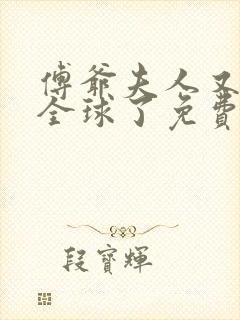 傅爺夫人又
全球了免費
段寶輝